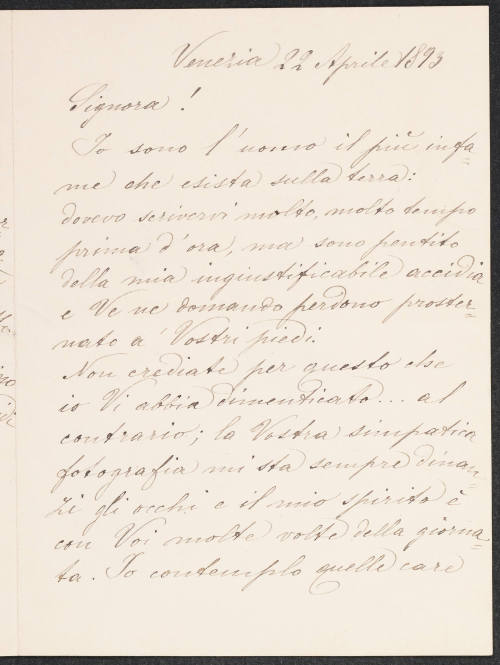 Venezia 22 Aprile 1893
Signora!
Io sono l'uomo il più infa=
me che esista sulla terra:
dovevo scrivervi molto, molto tempo
prima d'ora, ma sono pentito
della mia ingiustificabile accidia
e Ve ne domando perdono proster=
nato a' Vostri piedi.
Non crediate per questo che
io Vi abbia dimenticato... al
contrario; la Vostra simpatica
fotografia mi sta sempre dinan=
zi gli occhi e il mio spirito è
con Voi molte volte della giorna=
ta. Io contemplo quelle care